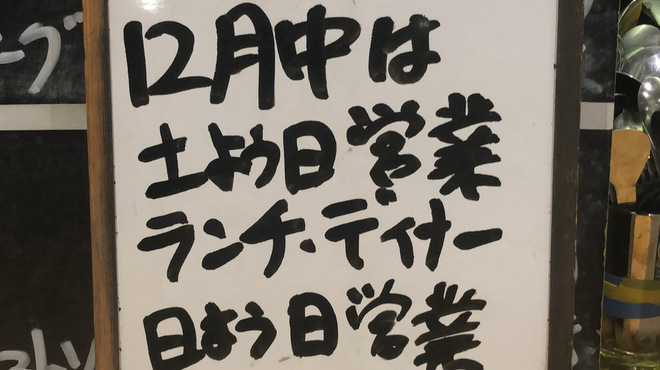 12月中は
土よう日営業
ランチ・ディナー
日よう日営業